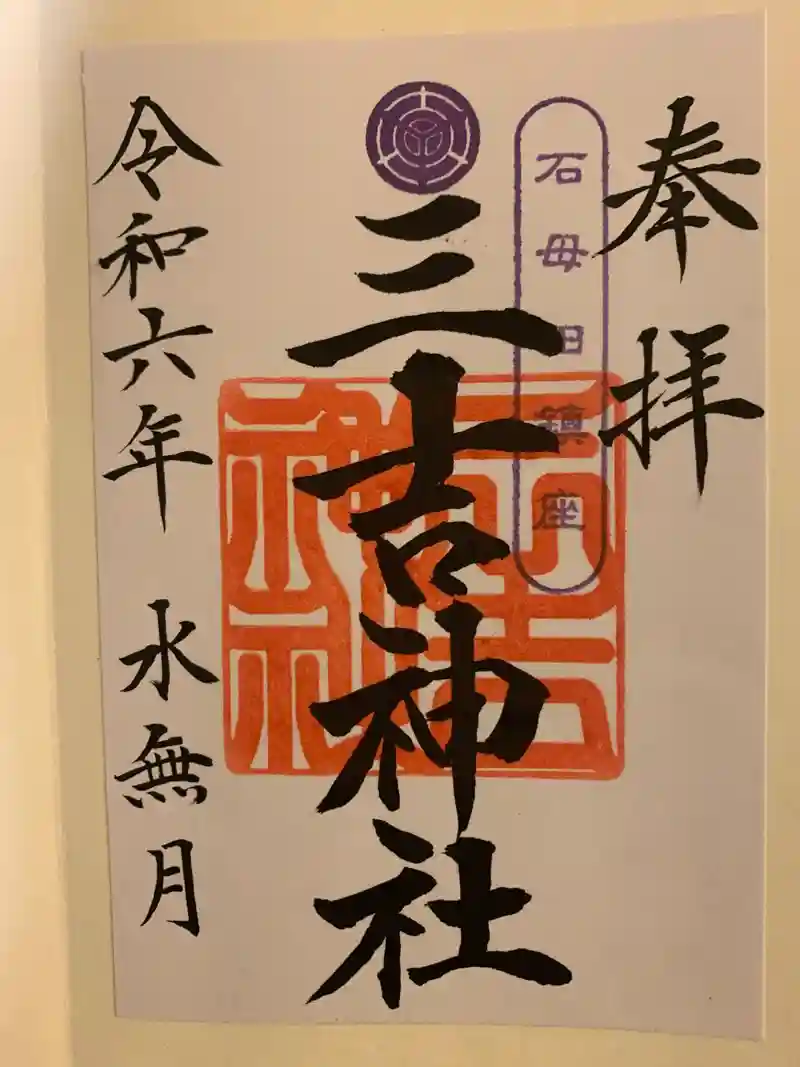 奉拝
石母田鎮座
三吉神社
三吉神社
令和六年 水無月